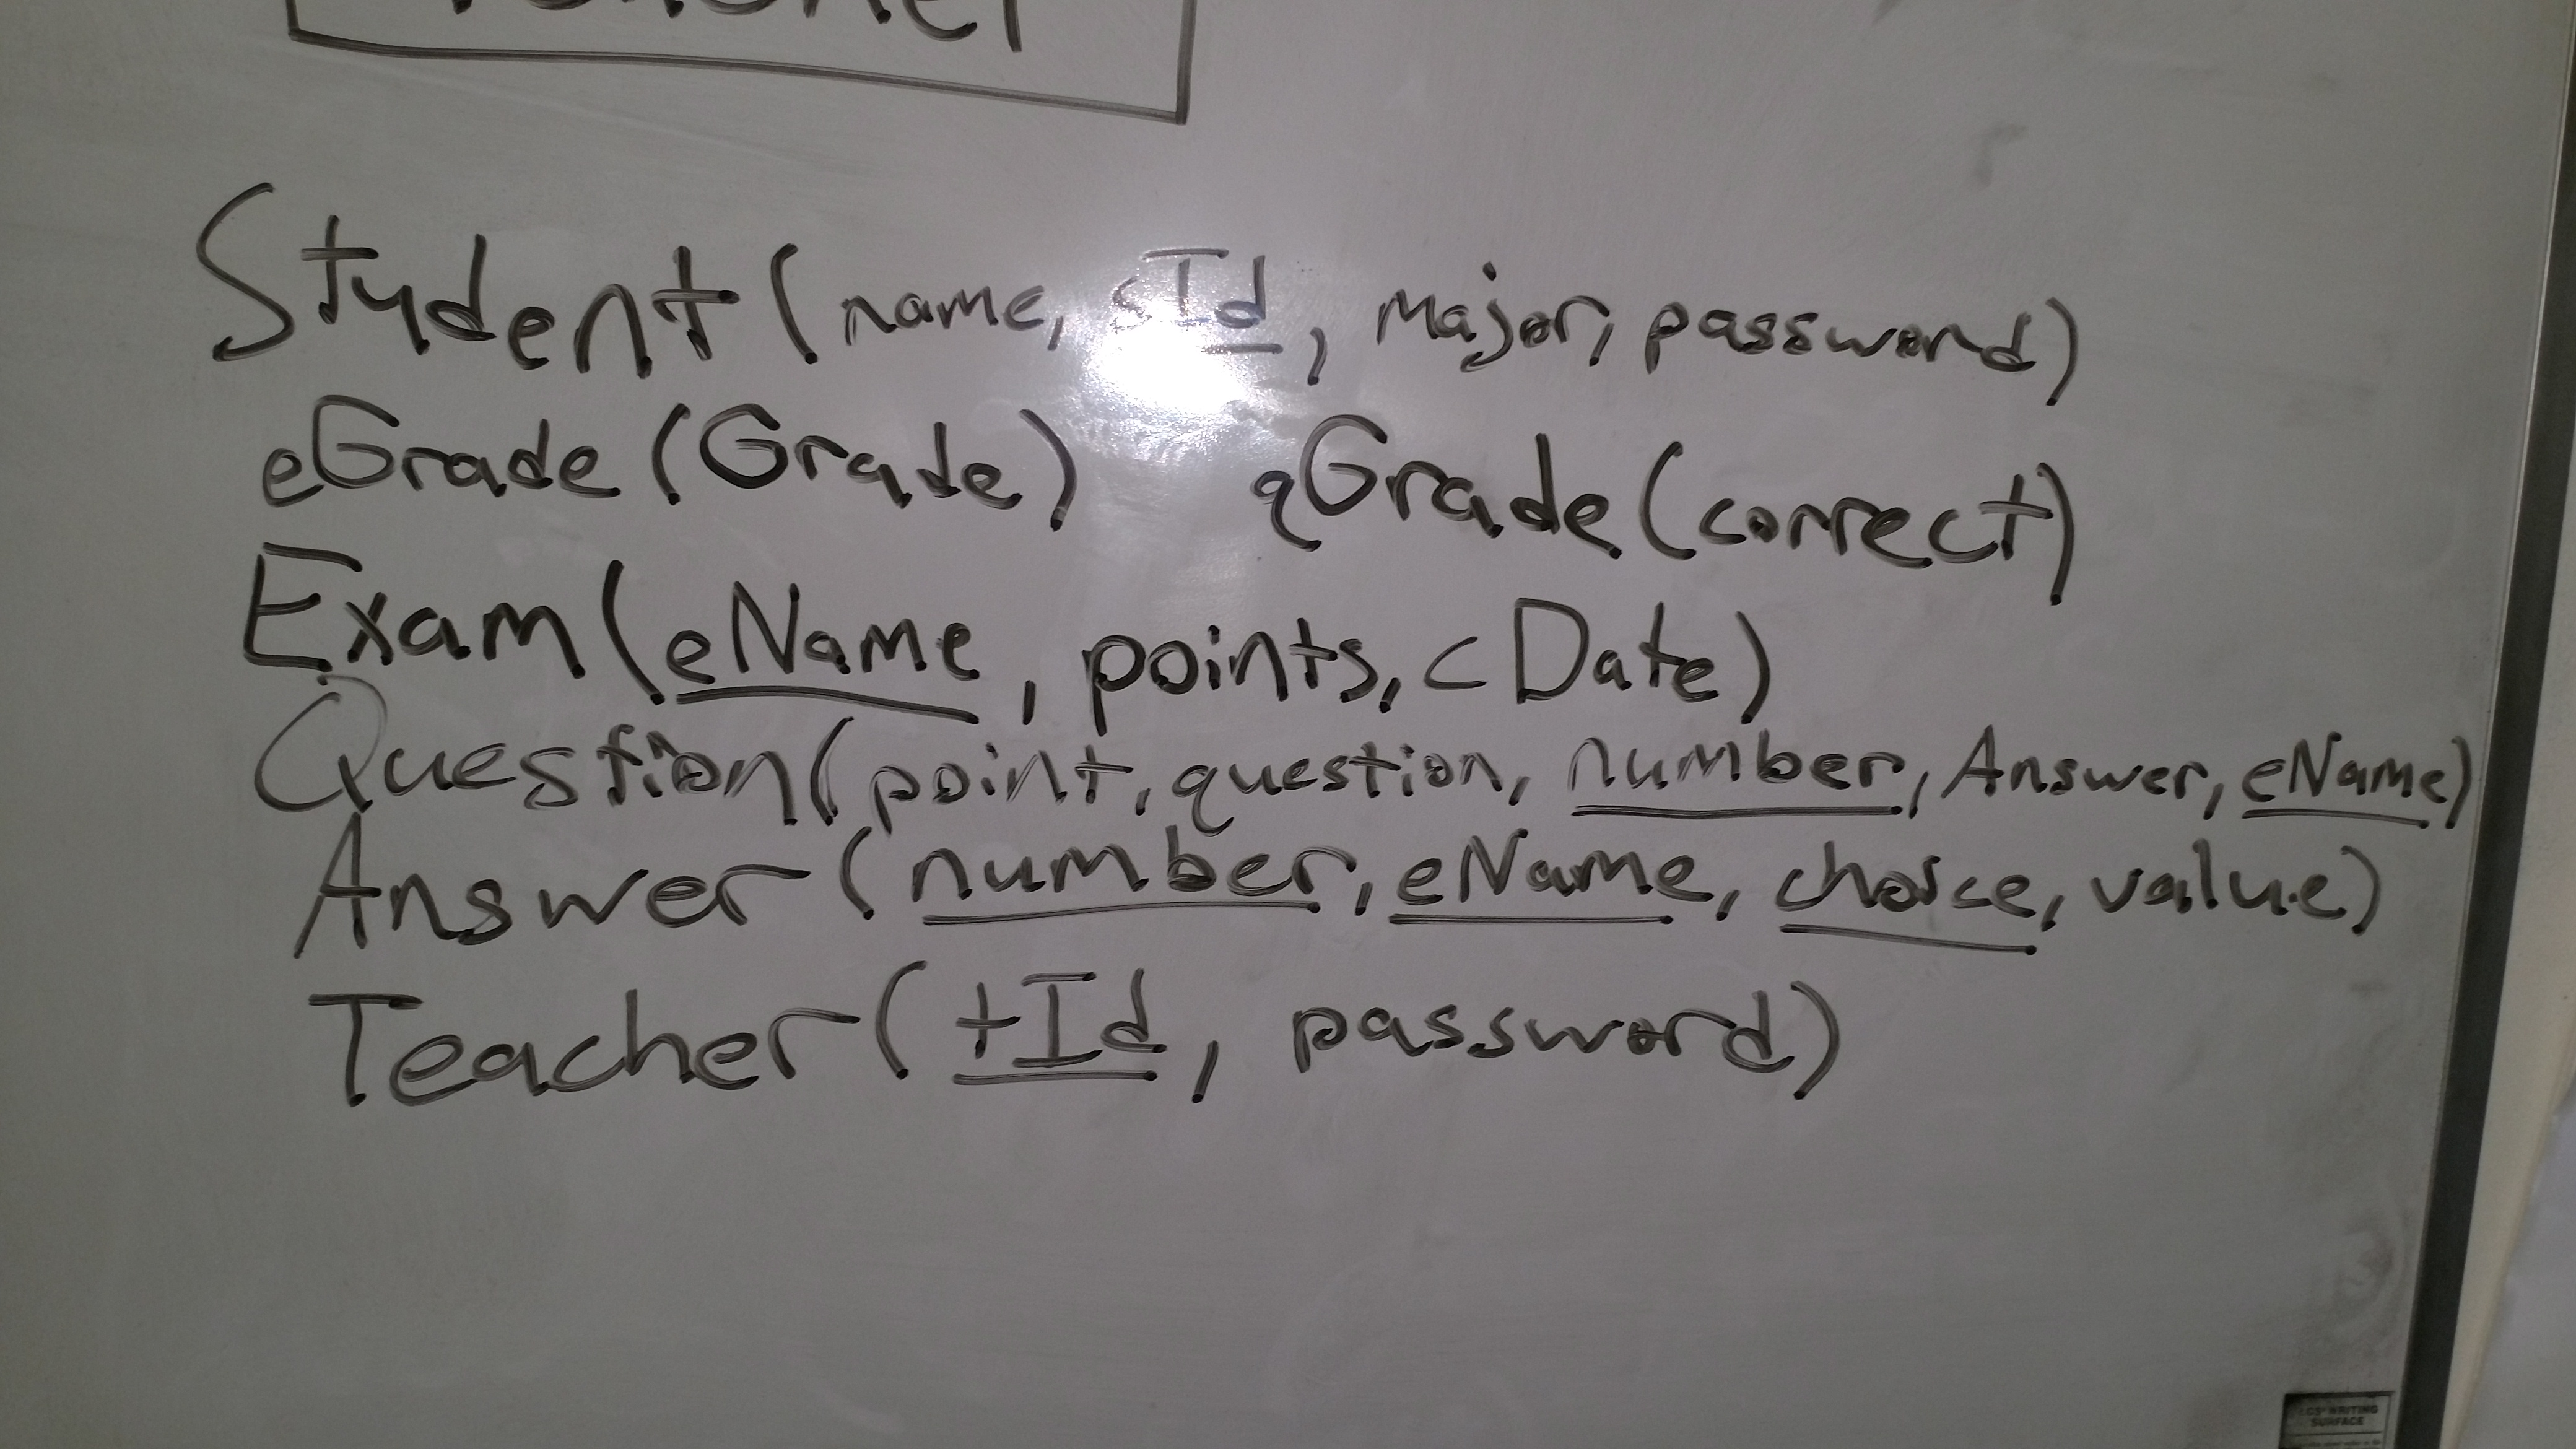 Teacher
Student (name, sId, major, password)
eGrade (Grade) qGrade (correct)
Exam (eName, points, cDate)
Question (point, question, number, Answer, eName)
Answer (number, eName, choice, value)
Teacher (tId, password)
WRITING
SURFACE